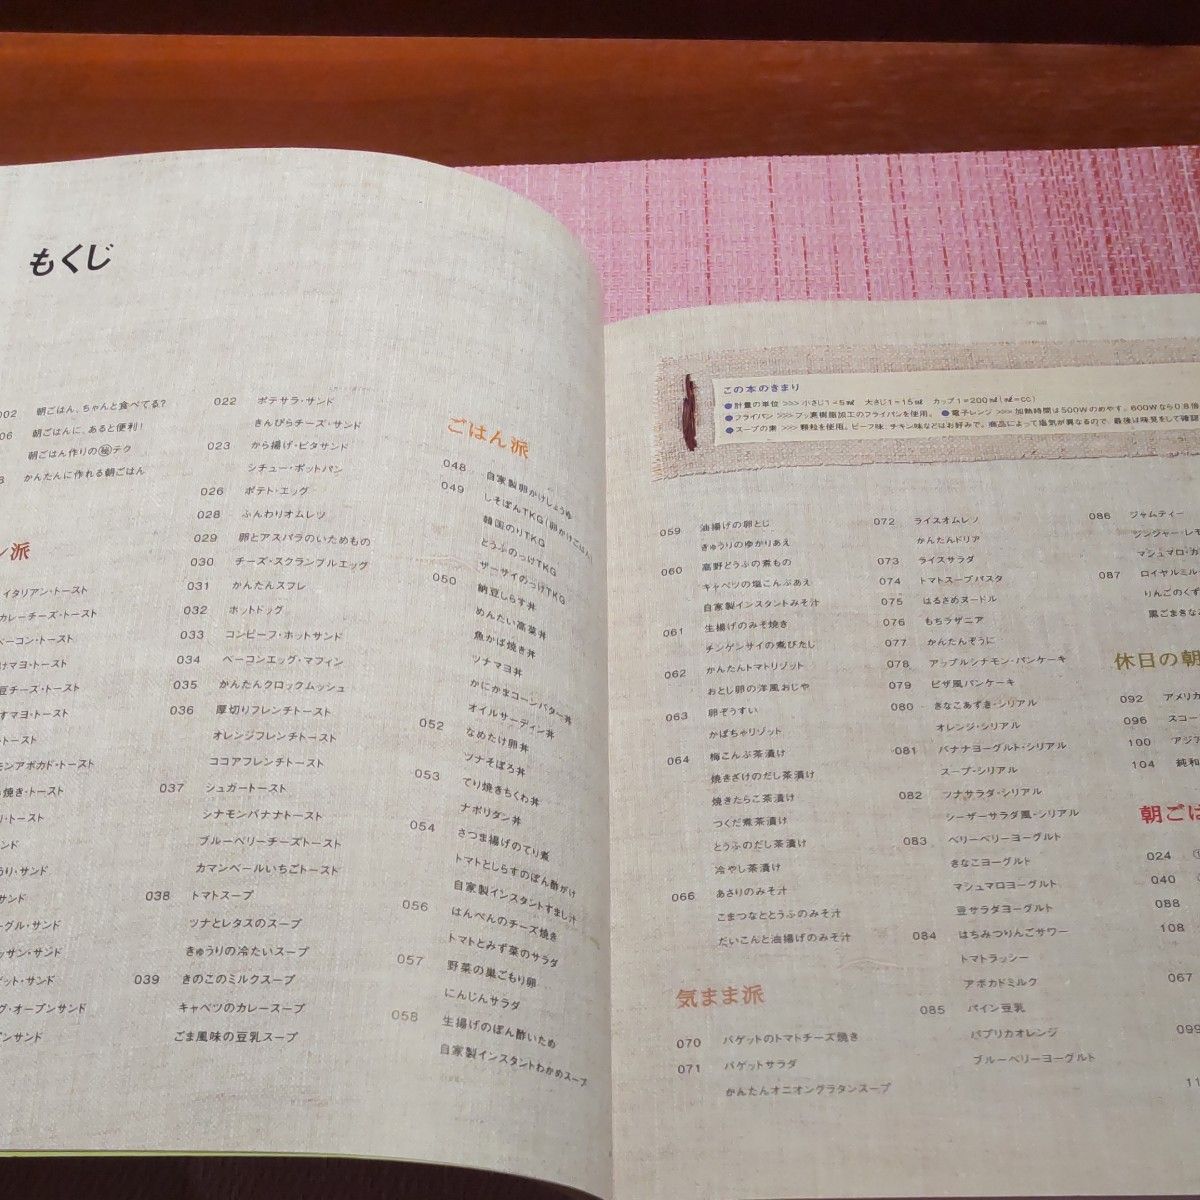 もくじ
002 朝ごはん、ちゃんと食べてる?
06 朝ごはんに、あると便利!
朝ごはん作りの㊙テク
かんたんに作れる朝ごはん
ン派
イタリアン・トースト
カレーチーズ・トースト
ベーコン・トースト
けマヨ・トースト
豆チーズ・トースト
すマヨ・トースト
・トースト
モンアボカド・トースト
焼き・トースト
・トースト
ンド
うり・サンド
サンド
ーグル・サンド
ッサン・サンド
ゲット・サンド
グ・オープンサンド
プンサンド
022 ポテサラ・サンド
きんぴらチーズ・サンド
023 から揚げ・ピタサンド
シチュー・ポットパン
026 ポテト・エッグ
028 ふんわりオムレツ
029 卵とアスパラのいためもの
030 チーズ・スクランブルエッグ
031 かんたんスフレ
032 ホットドッグ
033 コンビーフ・ホットサンド
034 ベーコンエッグ・マフィン
035 かんたんクロックムッシュ
036 厚切りフレンチトースト
オレンジフレンチトースト
ココアフレンチトースト
037 シュガートースト
シナモンバナナトースト
ブルーベリーチーズトースト
カマンベールいちごトースト
038 トマトスープ
ツナとレタスのスープ
きゅうりの冷たいスープ
039 きのこのミルクスープ
キャベツのカレースープ
ごま風味の豆乳スープ
ごはん派
048 自家製卵かけしょうゆ
049 しそぽんTKG(卵かけごはん)
韓国のりTKG
とうふのっけTKG
ザーサイのっけTKG
050 納豆しらす丼
めんたい高菜丼
魚かば焼き丼
ツナマヨ丼
かにかまコーンバター丼
オイルサーディン丼
052 なめたけ卵丼
ツナそぼろ丼
053 てり焼きちくわ丼
ナポリタン丼
054 さつま揚げのてり煮
トマトとしらすのぽん酢がけ
自家製インスタントすまし汁
056 はんぺんのチーズ焼き
トマトとみず菜のサラダ
057 野菜の巣ごもり卵
にんじんサラダ
058 生揚げのぽん酢いため
自家製インスタントわかめスープ
この本のきまり
●計量の単位 >>> 小さじ1=5㎖ 大さじ1=15㎖ カップ1=200㎖(㎖=cc)
●フライパン >>> フッ素樹脂加工のフライパンを使用。 ●電子レンジ >>> 加熱時間は500Wのめやす。600Wなら0.8倍
●スープの素 >>> 顆粒を使用。ビーフ味、チキン味などはお好みで。商品によって塩気が異なるので、最後は味見をして確認
059 油揚げの卵とじ
きゅうりのゆかりあえ
060 高野どうふの煮もの
キャベツの塩こんぶあえ
自家製インスタントみそ汁
061 生揚げのみそ焼き
チンゲンサイの煮びたし
062 かんたんトマトリゾット
おとし卵の洋風おじや
063 卵ぞうすい
かぼちゃリゾット
064 梅こんぶ茶漬け
焼きざけのだし茶漬け
焼きたらこ茶漬け
つくだ煮茶漬け
とうふのだし茶漬け
冷やし茶漬け
066 あさりのみそ汁
こまつなととうふのみそ汁
だいこんと油揚げのみそ汁
気まま派
070 バゲットのトマトチーズ焼き
071 バゲットサラダ
かんたんオニオングラタンスープ
072 ライスオムレツ
かんたんドリア
073 ライスサラダ
074 トマトスープパスタ
075 はるさめヌードル
076 もちラザニア
077 かんたんぞうに
078 アップルシナモン・パンケーキ
079 ピザ風パンケーキ
080 きなこあずき・シリアル
オレンジ・シリアル
081 バナナヨーグルト・シリアル
スープ・シリアル
082 ツナサラダ・シリアル
シーザーサラダ風・シリアル
083 ベリーベリーヨーグルト
きなこヨーグルト
マシュマロヨーグルト
豆サラダヨーグルト
084 はちみつりんごサワー
トマトラッシー
アボカドミルク
085 パイン豆乳
パプリカオレンジ
ブルーベリーヨーグルト
086 ジャムティー
ジンジャー・レモ
マシュマロ・カ
087 ロイヤルミル
りんごのくず
黒ごまきなこ
休日の朝
092 アメリカ
096 スコー
100 アジア
104 純和
朝ごは
024
040
088
108
067
099
11